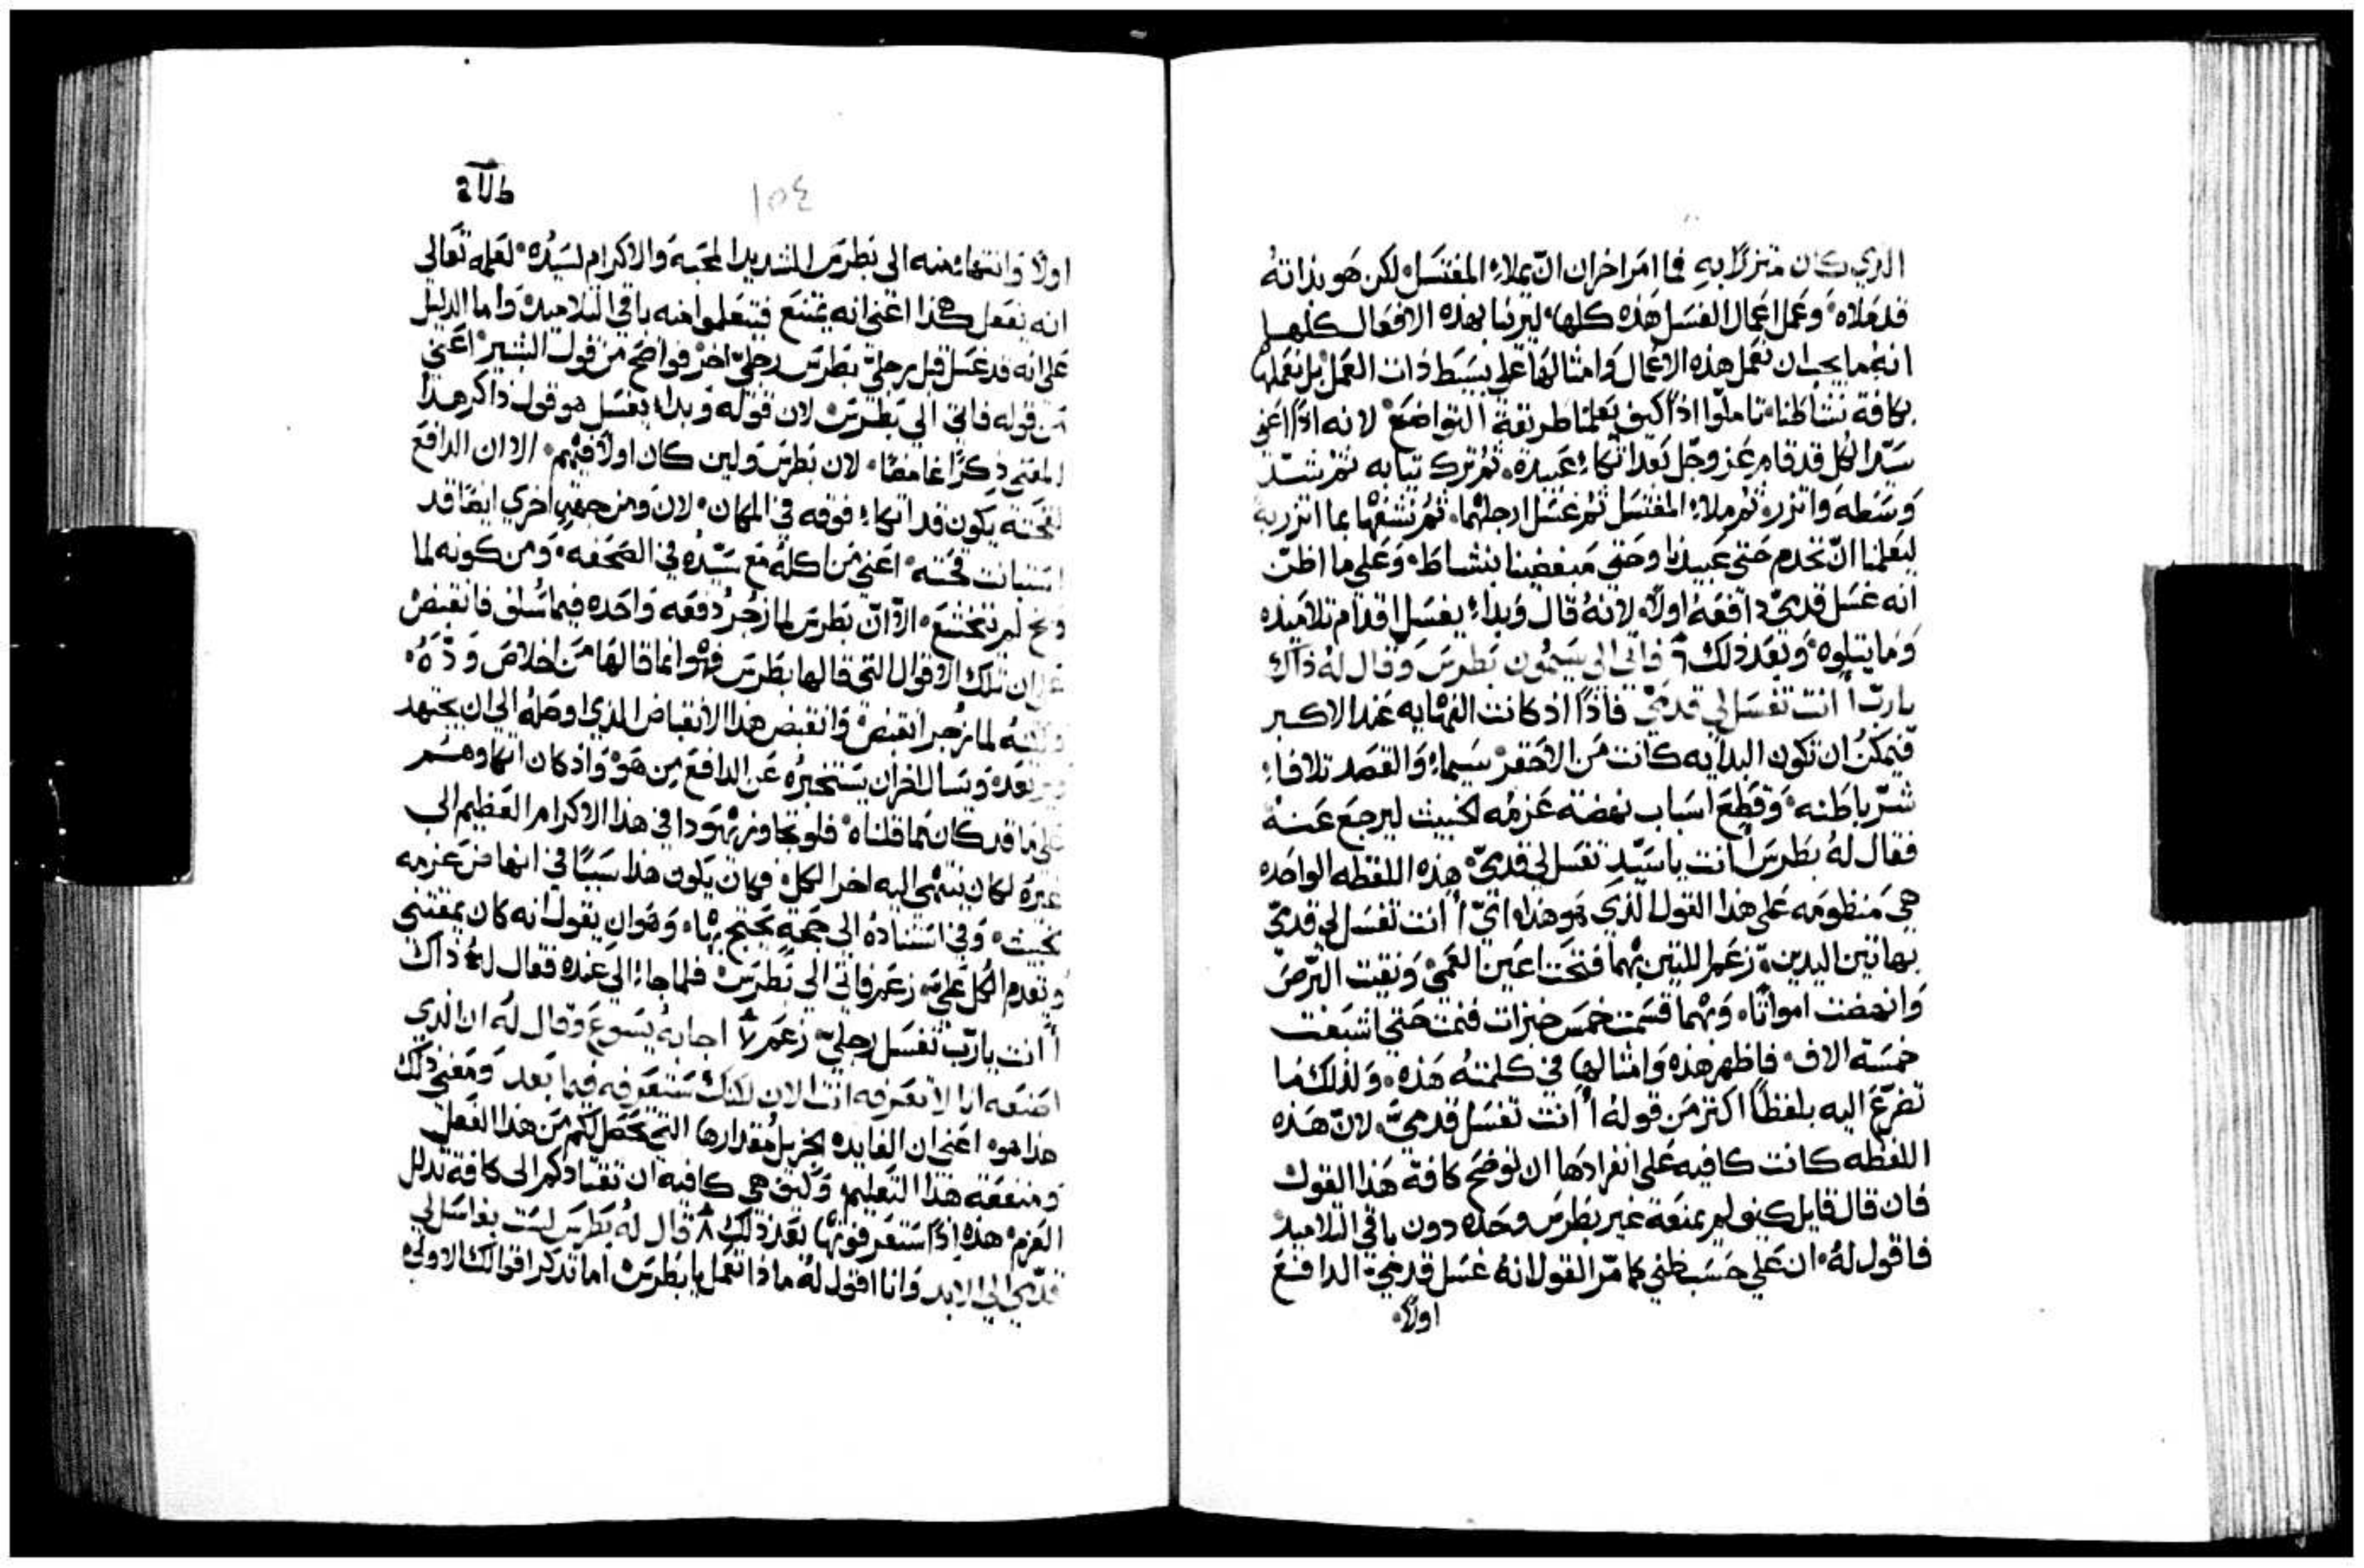 الذي كان متزرًا به فما امر اخران انّ يملاء المغتسل لكن هو بذاته
قد ملاه وعمل اعمال الغسل هذه كلها ليرينا بهذه الافعال كلها
انه ما يجب ان نعمل هذه الاعمال وامثالها على بسيط ذات العمل بل نعملها
بكافة نشاطنا تاملوا اذًا كيف يعلمنا طريقة التواضع لانه اذًا اعني
سيّد الكل قد قام عز وجل بعد اتكاء عبيده ثم ترك ثيابه ثم شدّ
وسطه واتزر ثم ملاء المغتسل ثم غسل ارجلهما ثم نشفها بما اتزر به
ليعلمنا انّ نخدم حتى عبيدنا وحتى مبغضينا بنشاط وعلى ما اظنّ
انه غسل قدميّ دافعه اولاً لانه قال وبداء يغسل اقدام تلاميذه
وما يتلوه وبعد ذلك ٦ فاتى الى سيمون بطرس وقال له ذاك
يا ربّ أانت تغسل لي قدميّ فاذًا اذ كانت النهايه عند الاكبر
فيمكن ان تكون البدايه كانت من الاحقر سيماء والقصد تلافاء
شرّ باطنه وقطع اسباب نهضة عزمه الخبيث ليرجع عنه
فقال له بطرس أانت يا سيّد تغسل لي قدميّ هذه اللفظه الواحده
هي منظومه على هذا القول الذي هو هذا ايّ أانت تغسل لي قدميّ
بهاتين اليدين زعم اللتين بهما فتحت اعين العمي ونقيت البرص
وانهضت امواتًا وبهما قسمت خمس خبزات فنمت حتى اشبعت
خمسة الاف فاظهر هذه وامثالها في كلمته هذه ولذلك ما
تضرّع اليه بلفظًا اكثر من قوله أانت تغسل قدميّ لانّ هذه
اللفظه كانت كافيه على انفرادها ان توضح كافة هذا القول
فان قال قايل كيف لم يمنعه غير بطرس وحده دون باقي التلاميذ
فاقول له ان على حسب ظني كما مرّ القول انه غسل قدميّ الدافع
اولاً
١٥٤
اولاً وانتهاء منه الى بطرس الشديد المحبه والاكرام لسيّده لعلمه تعالى
انه يفعل هكذا اعني انه يمتنع فيتعلموا منه باقي التلاميذ واما الدليل
على انه قد غسل قبل رجليّ بطرس رجليّ اخر فواضح من قول البشير اعني
من قوله فاتى الى بطرس لان قوله وبداء يغسل هو قول ذاكر هذا
المعني ذكرًا غامضًا لان بطرس ولين كان اولاً فيهم الا ان الدافع
لقحته يكون قد اتكاء فوقه في المكان لان ومن جهةٍ اخري ايضًا قد
استبانت قحته اعني من اكله مع سيّده في الصحفه ومن كونه لما
وبخ لم يتخشع الا انّ بطرس لما زجر دفعه واحده فيما سلف فانقبض
ان تلك الاقوال التي قالها بطرس فهو انما قالها من اخلاص ودّه
لما زجر انقبض وانقبض هذا الانقباض الذي اوصله الى ان يجتهد
بعده وسال اخران يستخبره عن الدافع من هو واذ كان اتكاوهم
على ما قد كان كما قلناه فلو تجاوز يهودا في هذا الاكرام العظيم الى
غيره لكان ينتهي اليه اخر الكل فكان يكون هذا سببًا في انهاض عزمه
وفي استناده الى حجةٍ يحتج بها وهو ان يقول انه كان يمقتني
وتقدم الكل عليّ زعم فاتى الى بطرس فلما جاء الى عنده فقال له ذاك
أانت يا ربّ تغسل رجليّ زعم ٧ اجابه يسوع وقال له ان الذي
اصنعه انا لا تعرفه انت الان لكنك ستعرفه فيما بعد ومعني ذلك
هذا هو اعني ان الفايده الجزيل مقدارها التي تحصل لكم من هذا الفعل
ومنفعة هذا التعليم وكيف هي كافيه ان تقتادكم الى كافة تذلل
العزم هذه اذًا ستعرفونها بعد ذلك ٨ قال له بطرس لست بغاسل لي
قدميّ الى الابد وانا اقول له ما ذا تعمل يا بطرس اما تذكر اقوالك الاولى